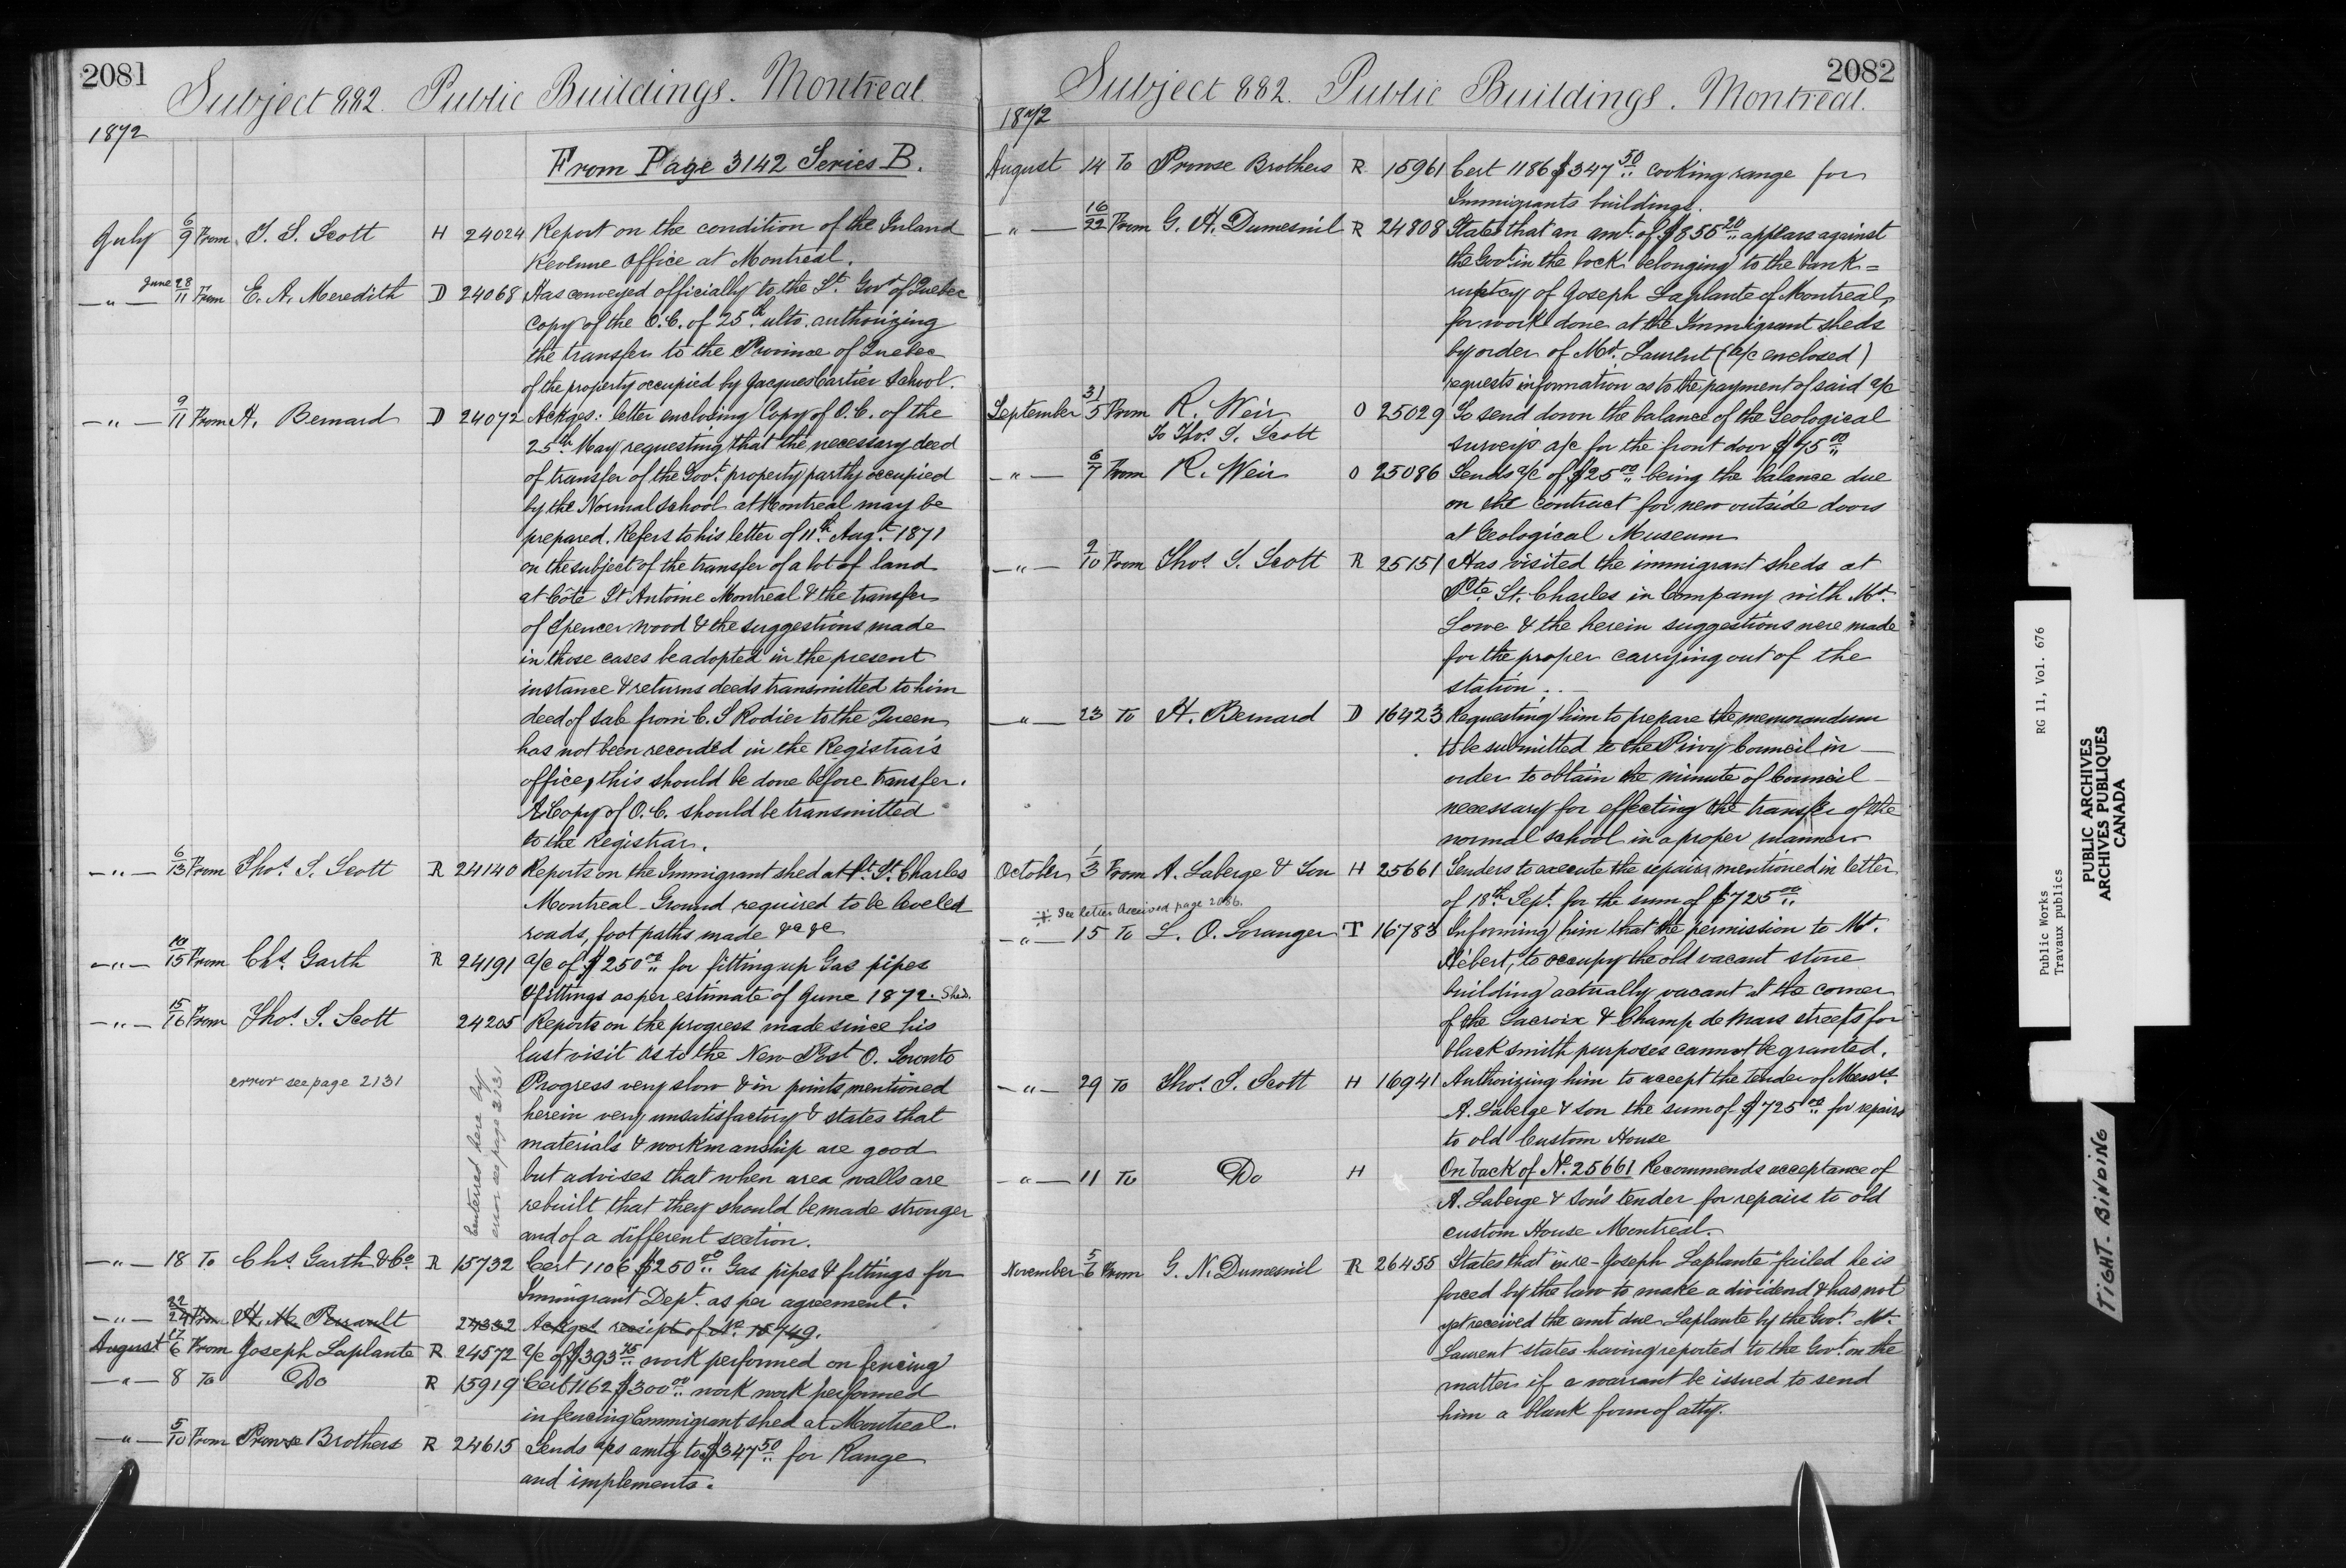 2081
Subject 882. Public Buildings. Montreal.
1872
From Page 3142 Series B.
July 6/9 From T. S. Scott H 24024 Report on the condition of the Inland
Revenue Office at Montreal.
—"— June 28/11 From E. A. Meredith D 24068 Has conveyed officially to the Lt. Govr of Quebec
copy of the O.C. of 25th ulto. authorizing
the transfer to the Province of Quebec
of the property occupied by Jacques Cartier School.
—"— 9/11 From H. Bernard D 24072 Ackges: letter enclosing Copy of O.C. of the
25th May requesting that the necessary deed
of transfer of the Govt. property partly occupied
by the Normal School at Montreal may be
prepared. Refers to his letter of 11th Augt. 1871
on the subject of the transfer of a lot of land
at Côte St Antoine Montreal & the transfer
of Spencer Wood & the suggestions made
in those cases be adopted in the present
instance & returns deeds transmitted to him
deed of sale from C. S Rodier to the Queen
has not been recorded in the Registrar's
office, this should be done before transfer.
A Copy of O.C. should be transmitted
to the Registrar.
—"— 6/13 From Thos. S. Scott R 24140 Reports on the Immigrant shed at Pt. St. Charles
Montreal - Ground required to be leveled
roads, foot paths made &c &c
—"— 10/15 From Chs. Garth R 24191 a/c of $250.00 for fitting up Gas pipes
& fittings as per estimate of June 1872. Shed.
—"— 15/16 From Thos. S. Scott 24205 Reports on the progress made since his
last visit as to the New Post O. Toronto
error see page 2131
Entered here by
error see page 2131
Progress very slow & in points mentioned
herein very unsatisfactory & states that
materials & workmanship are good
but advises that when area walls are
rebuilt that they should be made stronger
and of a different section.
—"— 18 To Chs. Garth & Co. R 15732 Cert 1106 $250.00 Gas pipes & fittings for
Immigrant Dept. as per agreement.
—"— 22/24 From H. M. Perrault 24332 Ackges receipt of No. 15749.
August 17/6 From Joseph Laplante R 24572 a/c of $393.75 work performed on fencing
—"— 8 To Do R 15919 Cert 1162 $300.00 work work performed
in fencing Emmigrant shed at Montreal.
—"— 5/10 From Prowse Brothers R 24615 Sends a/cs amtg to $347.50 for Range
and implements.
2082
Subject 882. Public Buildings. Montreal.
1872
August 14 To Prowse Brothers R. 15961 Cert 1186 $347.50 cooking range for
Immigrants buildings.
—"— 16/22 From G. H. Dumesnil R 24808 States that an amt. of $855.20 appears against
the Govt. in the bock belonging to the bank=
ruptcy of Joseph Laplante of Montreal,
for work done at the Immigrant sheds
by order of Mr. Laurent (a/c enclosed)
requests information as to the payment of said a/c
September 31/5 From R. Weir O 25029 To send down the balance of the Geological
To Thos. S. Scott
survey's a/c for the front door $75.00
—"— 6/7 From R. Weir O 25086 Sends a/c of $25.00 being the balance due
on the contract for new outside doors
at Geological Museum
—"— 9/10 From Thos. S. Scott R 25151 Has visited the immigrant sheds at
Pte. St. Charles in Company with Mr.
Lowe & the herein suggestions were made
for the proper carrying out of the
station. . —
—"— 23 To H. Bernard D 16423 Requesting him to prepare the memorandum
to be submitted to the Privy Council in —
order to obtain the minute of Council —
necessary for effecting the transfer of the
normal school in a proper manner
October 1/3 From A. Laberge & Son H 25661 Tenders to execute the repairs mentioned in letter
of 18th Sept. for the sum of $725.00
See letter received page 2086.
—"— 15 To L. O. Loranger T 16783 Informing him that the permission to Mr.
Hébert, to occupy the old vacant stone
building actually vacant at the corner
of the Lacroix & Champ de Mars streets for
black smith purposes cannot be granted.
—"— 29 To Thos. S. Scott H 16941 Authorizing him to accept the tender of Messrs.
A. Laberge & Son the sum of $725.00 for repairs
to old Custom House
—"— 11 To Do H On back of No. 25661 Recommends acceptance of
A. Laberge & Son's tender for repairs to old
custom House Montreal.
November 5/6 From G. N. Dumesnil R 26455 States that in re - Joseph Laplante failed he is
forced by the law to make a dividend & has not
yet received the amt due Laplante by the Govt. Mr.
Laurent states having reported to the Govt. on the
matter if a warrant be issued to send
him a blank form of atty.
Public Works RG 11, Vol. 676
Travaux publics
PUBLIC ARCHIVES
ARCHIVES PUBLIQUES
CANADA
TIGHT. BINDING